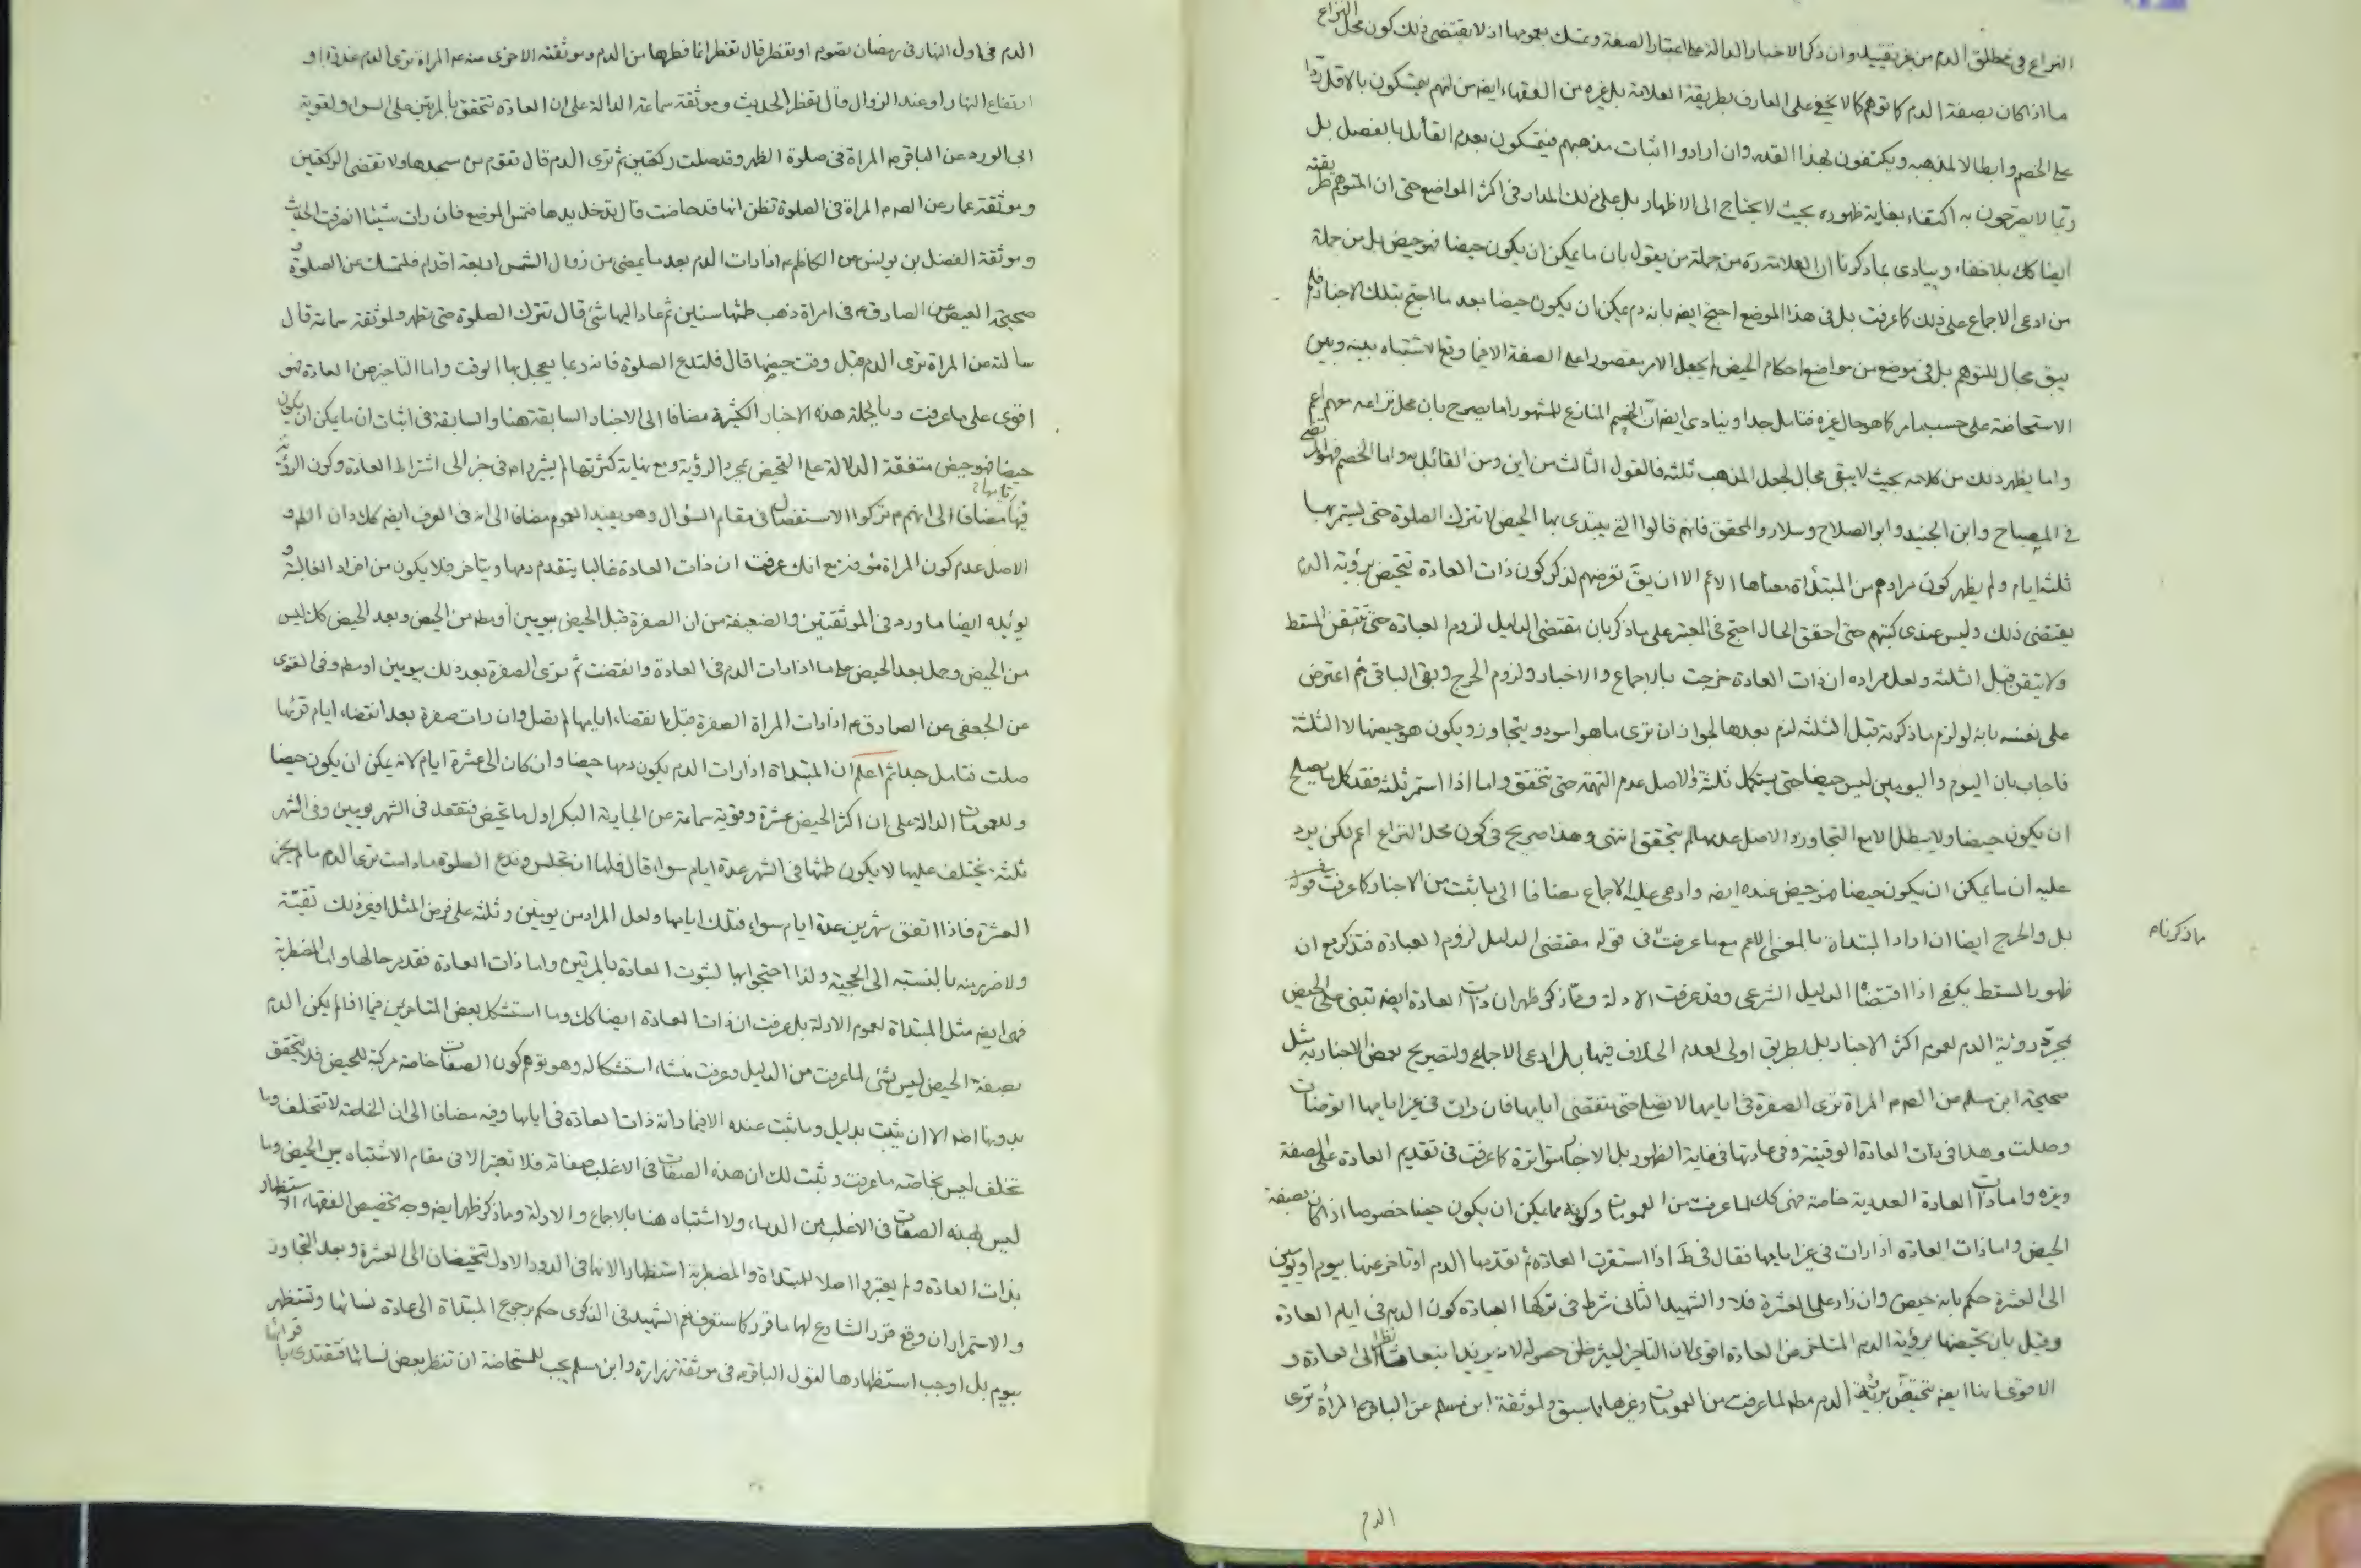 النزاع في مطلق الدم من غير تقييد وان ذكر الاخبار الدالة على اعتبار الصفة وتمسك بعمومها اذ لا يقتضى ذلك كون محل النزاع
ما اذا كان بصفة الدم كما توهم كما لا يخفى على العارف بطريقة العلامة بل غيره من الفقهاء ايضا من انهم يتمسكون بالاقل ردا
على الخصم وابطالا لمذهبه ويكتفون بهذا القدر وان ارادوا اثبات مذهبهم فيتمسكون بعدم القائل بالفصل بل
ربما لا يصرحون به اكتفاء بغاية ظهوره بحيث لا يحتاج الى الاظهار بل على ذلك المدار في اكثر المواضع حتى ان المتوهم طريقته
ايضا كك بلا خفاء وينادى بما ذكرنا ان العلامة ره من جملة من يقول بان ما يمكن ان يكون حيضا فهو حيض بل من جملة
من ادعى الاجماع على ذلك كما عرفت بل في هذا الموضع احتج ايضا بانه دم يمكن ان يكون حيضا بعد ما احتج بتلك الاخبار فلم
يبق مجال للتوهم بل في موضع من مواضع احكام الحيض لم يجعل الامر مقصورا على الصفة الا فيما وقع الاشتباه بينه وبين
الاستحاضة على حسب ما مر كما هو حال غيره فتامل جدا وينادى ايضا ان الخصم المنازع للمشهور اما يصرح بان محل نزاعه معهم اعم
واما يظهر ذلك من كلامه بحيث لا يبقى مجال لجعل المذهب ثلثة فالقول الثالث من اين ومن القائل به واما الخصم فهو المرتضى
في المصباح وابن الجنيد وابو الصلاح وسلار والمحقق فانهم قالوا التى يبتدى بها الحيض لا تترك الصلوة حتى يستمر بها
ثلثة ايام ولم يظهر كون مرادهم من المبتدأة معناها الاعم الا ان يق تعرضهم لذكر كون ذات العادة تتحيض برؤية الدم
يقتضى ذلك وليس عندى كتبهم حتى احقق الحال احتج في المعتبر على ما ذكر بان مقتضى الدليل لزوم العبادة حتى تتيقن المسقط
ولا يتيقن قبل الثلثة ولعل مراده ان ذات العادة خرجت بالاجماع والاخبار ولزوم الحرج وبقى الباقى ثم اعترض
على نفسه بانه لو لزم ما ذكرته قبل الثلثة لزم بعدها لجواز ان ترى ما هو اسود ويتجاوز ويكون هو حيضها لا الثلثة
فاجاب بان اليوم واليومين ليس حيضا حتى يستكمل ثلثة والاصل عدم التتمة حتى تتحقق واما اذا استمر ثلثة فقد كمل ما يصلح
ان يكون حيضا ولا يبطل الا مع التجاوز والاصل عدمه ما لم يتحقق انتهى وهذا صريح في كون محل النزاع اعم لكن يرد
عليه ان ما يمكن ان يكون حيضا فهو حيض عنده ايضا وادعى عليه الاجماع مضافا الى ما ثبت من الاخبار كما عرفت في قوله
بل والحرج ايضا ان اراد المبتداة بالمعنى الاعم مع ما عرفت في قوله مقتضى الدليل لزوم العبادة فتذكر مع ان
ما ذكرنا م
ظهور المسقط يكفى اذا اقتضاه الدليل الشرعى وقد عرفت الادلة ومما ذكر ظهر ان ذات العادة ايضا تبنى على الحيض
بمجرد رؤية الدم لعموم اكثر الاخبار بل بطريق اولى لعدم الخلاف فيها بل ادعى الاجماع ولتصريح بعض الاخبار به مثل
صحيحة ابن مسلم عن الصم المراة ترى الصفرة في ايامها لا تصل حتى تنقضى ايامها فان رات في غير ايامها توضات
وصلت وهذا في ذات العادة الوقتية وفي عادتها في غاية الظهور بل الاخبار متواترة كما عرفت في تقديم العادة على الصفة
وغيره واما ذات العادة العددية خاصة فهى كك لما عرفت من العمومات وكونه مما يمكن ان يكون حيضا خصوصا اذا كان بصفة
الحيض واما ذات العادة اذا رات في غير ايامها فقال في ط اذا استقرت العادة ثم تقدمها الدم او تاخر عنها بيوم او يومين
الى العشرة حكم بانه حيض وان زاد على العشرة فلا والشهيد الثانى شرط في تركها العبادة كون الدم في ايام العادة
وقيل بان تحيضها برؤية الدم المتاخر عن العادة اقوى لان التاخر يثير ظن حصوله لانه يزيد انبعاثا نظرا الى العادة و
الاقوى انها ايضا تتحيض برؤية الدم مطلقا لما عرفت من العمومات وغيرها مما سبق ولموثقة ابن مسلم عن الباقر ع المراة ترى
الدم
الدم في اول النهار في رمضان تصوم او تفطر قال تفطر انما فطرها من الدم وموثقته الاخرى عنه ع المراة ترى الدم غدوة او
ارتفاع النهار او عند الزوال قال تفطر الحديث وموثقة سماعة الدالة على ان العادة تتحقق بالمرتين على السواء ولقوية
ابى الورد عن الباقر ع المراة في صلوة الظهر وقد صلت ركعتين ثم ترى الدم قال تقوم من مسجدها ولا تقضى الركعتين
وموثقة عمار عن الصم المراة في الصلوة تظن انها قد حاضت قال تدخل يدها فتمس الموضع فان رات شيئا انصرفت الحديث
وموثقة الفضل بن يونس عن الكاظم ع اذا رات الدم بعد ما يمضى من زوال الشمس اربعة اقدام فلتمسك عن الصلوة و
صحيحة العيص عن الصادق ع في امراة ذهب طمثها سنين ثم عاد اليها شئ قال تترك الصلوة حتى تطهر ولموثقة سماعة قال
سالته عن المراة ترى الدم قبل وقت حيضها قال فلتدع الصلوة فانه ربما يعجل بها الوقت واما التاخير عن العادة فهو
اقوى على ما عرفت وبالجملة هذه الاخبار الكثيرة مضافا الى الاخبار السابقة هنا والسابقة في اثبات ان ما يمكن ان يكون
حيضا فهو حيض متفقة الدلالة على التحيض بمجرد الرؤية ومع نهاية كثرتها لم يشيروا ع في خبر الى اشتراط العادة وكون الرؤية
فيها مضافا الى انهم ع تركوا الاستفصال في مقام السؤال وهو يفيد العموم مضافا الى انه في العرف ايضا كك وان الظ و
الاصل عدم كون المراة مؤفة مع انك عرفت ان ذات العادة غالبا يتقدم دمها ويتاخر فلا يكون من افراد الغالبة و
يؤيده ايضا ما ورد في الموثقتين والضعيفة من ان الصفرة قبل الحيض بيومين او سطه من الحيض وبعد الحيض كك ليس
من الحيض وحمل بعد الحيض على ما اذا رات الدم في العادة وانقضت ثم ترى الصفرة بعد ذلك بيومين اوسطه وفي القوى
عن الجعفى عن الصادق ع اذا رات المراة الصفرة قبل انقضاء ايامها لم تصل وان رات صفرة بعد انقضاء ايام قرئها
صلت فتامل جدا ثم اعلم ان المبتداة اذا رات الدم يكون دمها حيضا وان كان الى عشرة ايام لانه يمكن ان يكون حيضا
وللعمومات الدالة على ان اكثر الحيض عشرة وقوية سماعة عن الجارية البكر اول ما تحيض فتقعد في الشهر يومين وفي الشهر
ثلثة يختلف عليها لا يكون طمثها في الشهر عدة ايام سواء قال فلها ان تجلس وتدع الصلوة ما دامت ترى الدم ما لم يجز
العشرة فاذا اتفق شهرين عدة ايام سواء فتلك ايامها ولعل المراد من يومين وثلثة على فرض المثل او غير ذلك تقية
ولا ضرر منه بالنسبه الى الحجية ولذا احتجوا بها لثبوت العادة بالمرتين واما ذات العادة فقد مر حالها واما المضطربة
فهى ايضا مثل المبتداة لعموم الادلة بل عرفت ان ذات العادة ايضا كك وما استشكل بعض المتاخرين فيما اذا لم يكن الدم
بصفة الحيض ليس بشئ لما عرفت من الدليل وعرفت منشاء استشكاله وهو توهم كون الصفات خاصة مركبة للحيض فلا يتحقق
بدونها اصلا الا ان يثبت بدليل وما ثبت عنده الا فيما راته ذات العادة في ايامها وفيه مضافا الى ان الخاصة لا تتخلف وما
تخلف ليس بخاصة ما عرفت وثبت لك ان هذه الصفات في الاغلب صفاته فلا تعتبر الا في مقام الاشتباه بين الحيض وما
ليس لهذه الصفات في الاغلب من الدماء ولا اشتباه هنا بالاجماع والادلة ومما ذكر ظهر ايضا وجه تخصيص الفقهاء الاستظهار
بذات العادة ولم يعتبروا اصلا للمبتداة والمضطربة استظهارا لانهما في الدور الاول تتحيضان الى العشرة وبعد التجاوز
والاستمرار ان وقع قرر الشارع لها ما قرر كما ستعرف نعم الشهيد في الذكرى حكم برجوع المبتداة الى عادة نسائها وتستظهر
بيوم بل اوجب استظهارها لقول الباقر ع في موثقة زرارة وابن مسلم يجب للمستحاضة ان تنظر بعض نسائها فتقتدى باقرائها